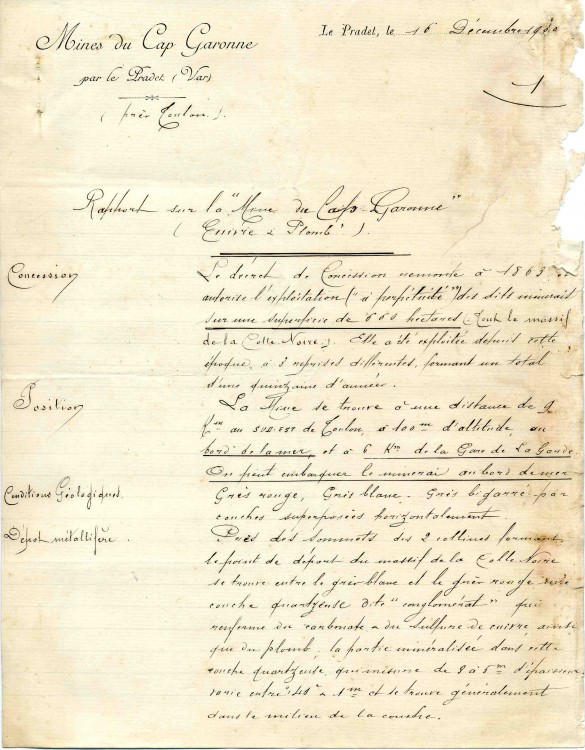 Mines du Cap Garonne
par le Pradet (Var)
(près Toulon.)
Le Pradet, le 16 Décembre 19
1
Rapport sur la "Mine du Cap Garonne"
(Cuivre & Plomb).
Concession
Le décret de Concession remonte à 1863 et
autorise l'exploitation ("à perpétuité") des dits minerais
sur une superficie de 660 hectares (Tout le massif
de la Colle Noire). Elle a été exploitée depuis cette
époque, à 3 reprises différentes, formant un total
d'une quinzaine d'années.
Position
La Mine se trouve à une distance de 9
Km au SUD-EST de Toulon, à 100m d'altitude, au
bord de la mer, et à 6 Km de la Gare de La Garde
On peut embarquer le minerai au bord de mer
Conditions Géologiques.
Grès rouge, Grès blanc. Grès bigarré par
couches superposées horizontalement.
Dépôt métallifère.
Près des sommets des 2 collines formant
le point de départ du massif de la Colle Noire
se trouve entre le grès blanc et le grès rouge une
couche quartzeuse dite "conglomérat" qui
renferme du carbonate & du sulfure de cuivre, ainsi
que du plomb; la partie minéralisée dans cette
couche quartzeuse, qui mesure de 2 à 5m d'épaisseur
varie entre 40 à 1m et se trouve généralement
dans le milieu de la couche.